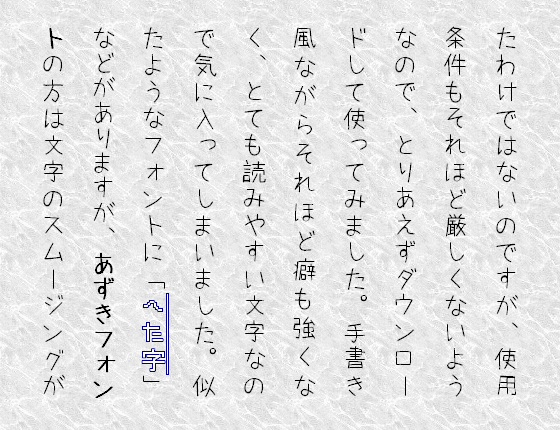 たわけではないのですが、使用
条件もそれほど厳しくないよう
なので、とりあえずダウンロー
ドして使ってみました。手書き
風ながらそれほど癖も強くな
く、とても読みやすい文字なの
で気に入ってしまいました。似
たようなフォントに「へた字」
などがありますが、あずきフォン
トの方は文字のスムージングが